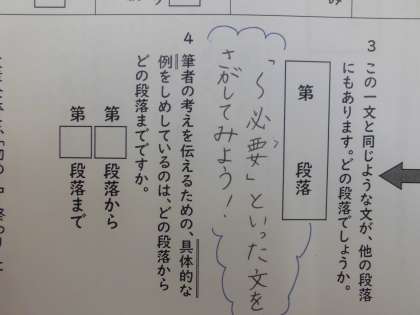 3 この一文と同じような文が、他の段落
にもあります。どの段落でしょうか。
第 段落
「〜必要」といった文を
さがしてみよう!
4 筆者の考えを伝えるための、具体的な
例をしめしているのは、どの段落から
どの段落までですか。
第 段落から
第 段落まで